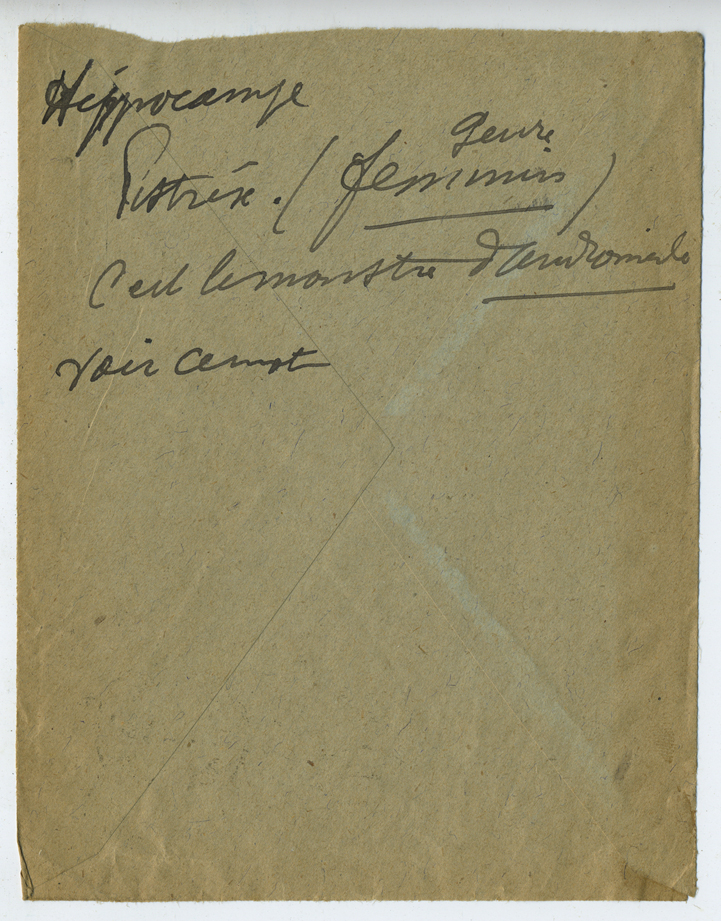 Hippocampe
Pistrix. (
genre
féminin )
C'est le monstre d'Andromède
voir ce mot